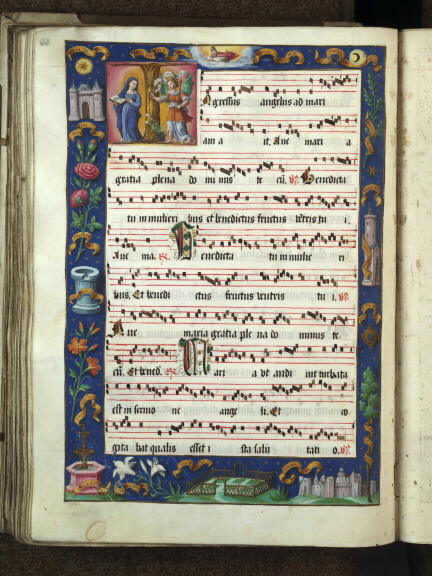 gressus angelus ad mari
am a it. Aue mari a
gratia plena do mi nus te cũ. ℣. Benedicta
tu in mulieri bus et benedictus fructus vẽtris tu i.
Aue ma. ℟. Benedicta tu in mulie ri
bus. Et benedi ctus fructus ventris tu i. ℣.
Aue maria gratia ple na do minus te
cũ. Et bened. ℟. Mari a vt audi uit turbata
est in sermo ne ange li. Et co
gita bat qualis esset i sta salu tati o. ℣.